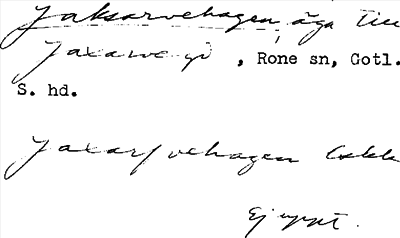 Jaksarvehagen, äga till
Jaxarve gd, Rone sn, Gotl.
S. hd.
Jaxarfvehagen
Ej uppt.